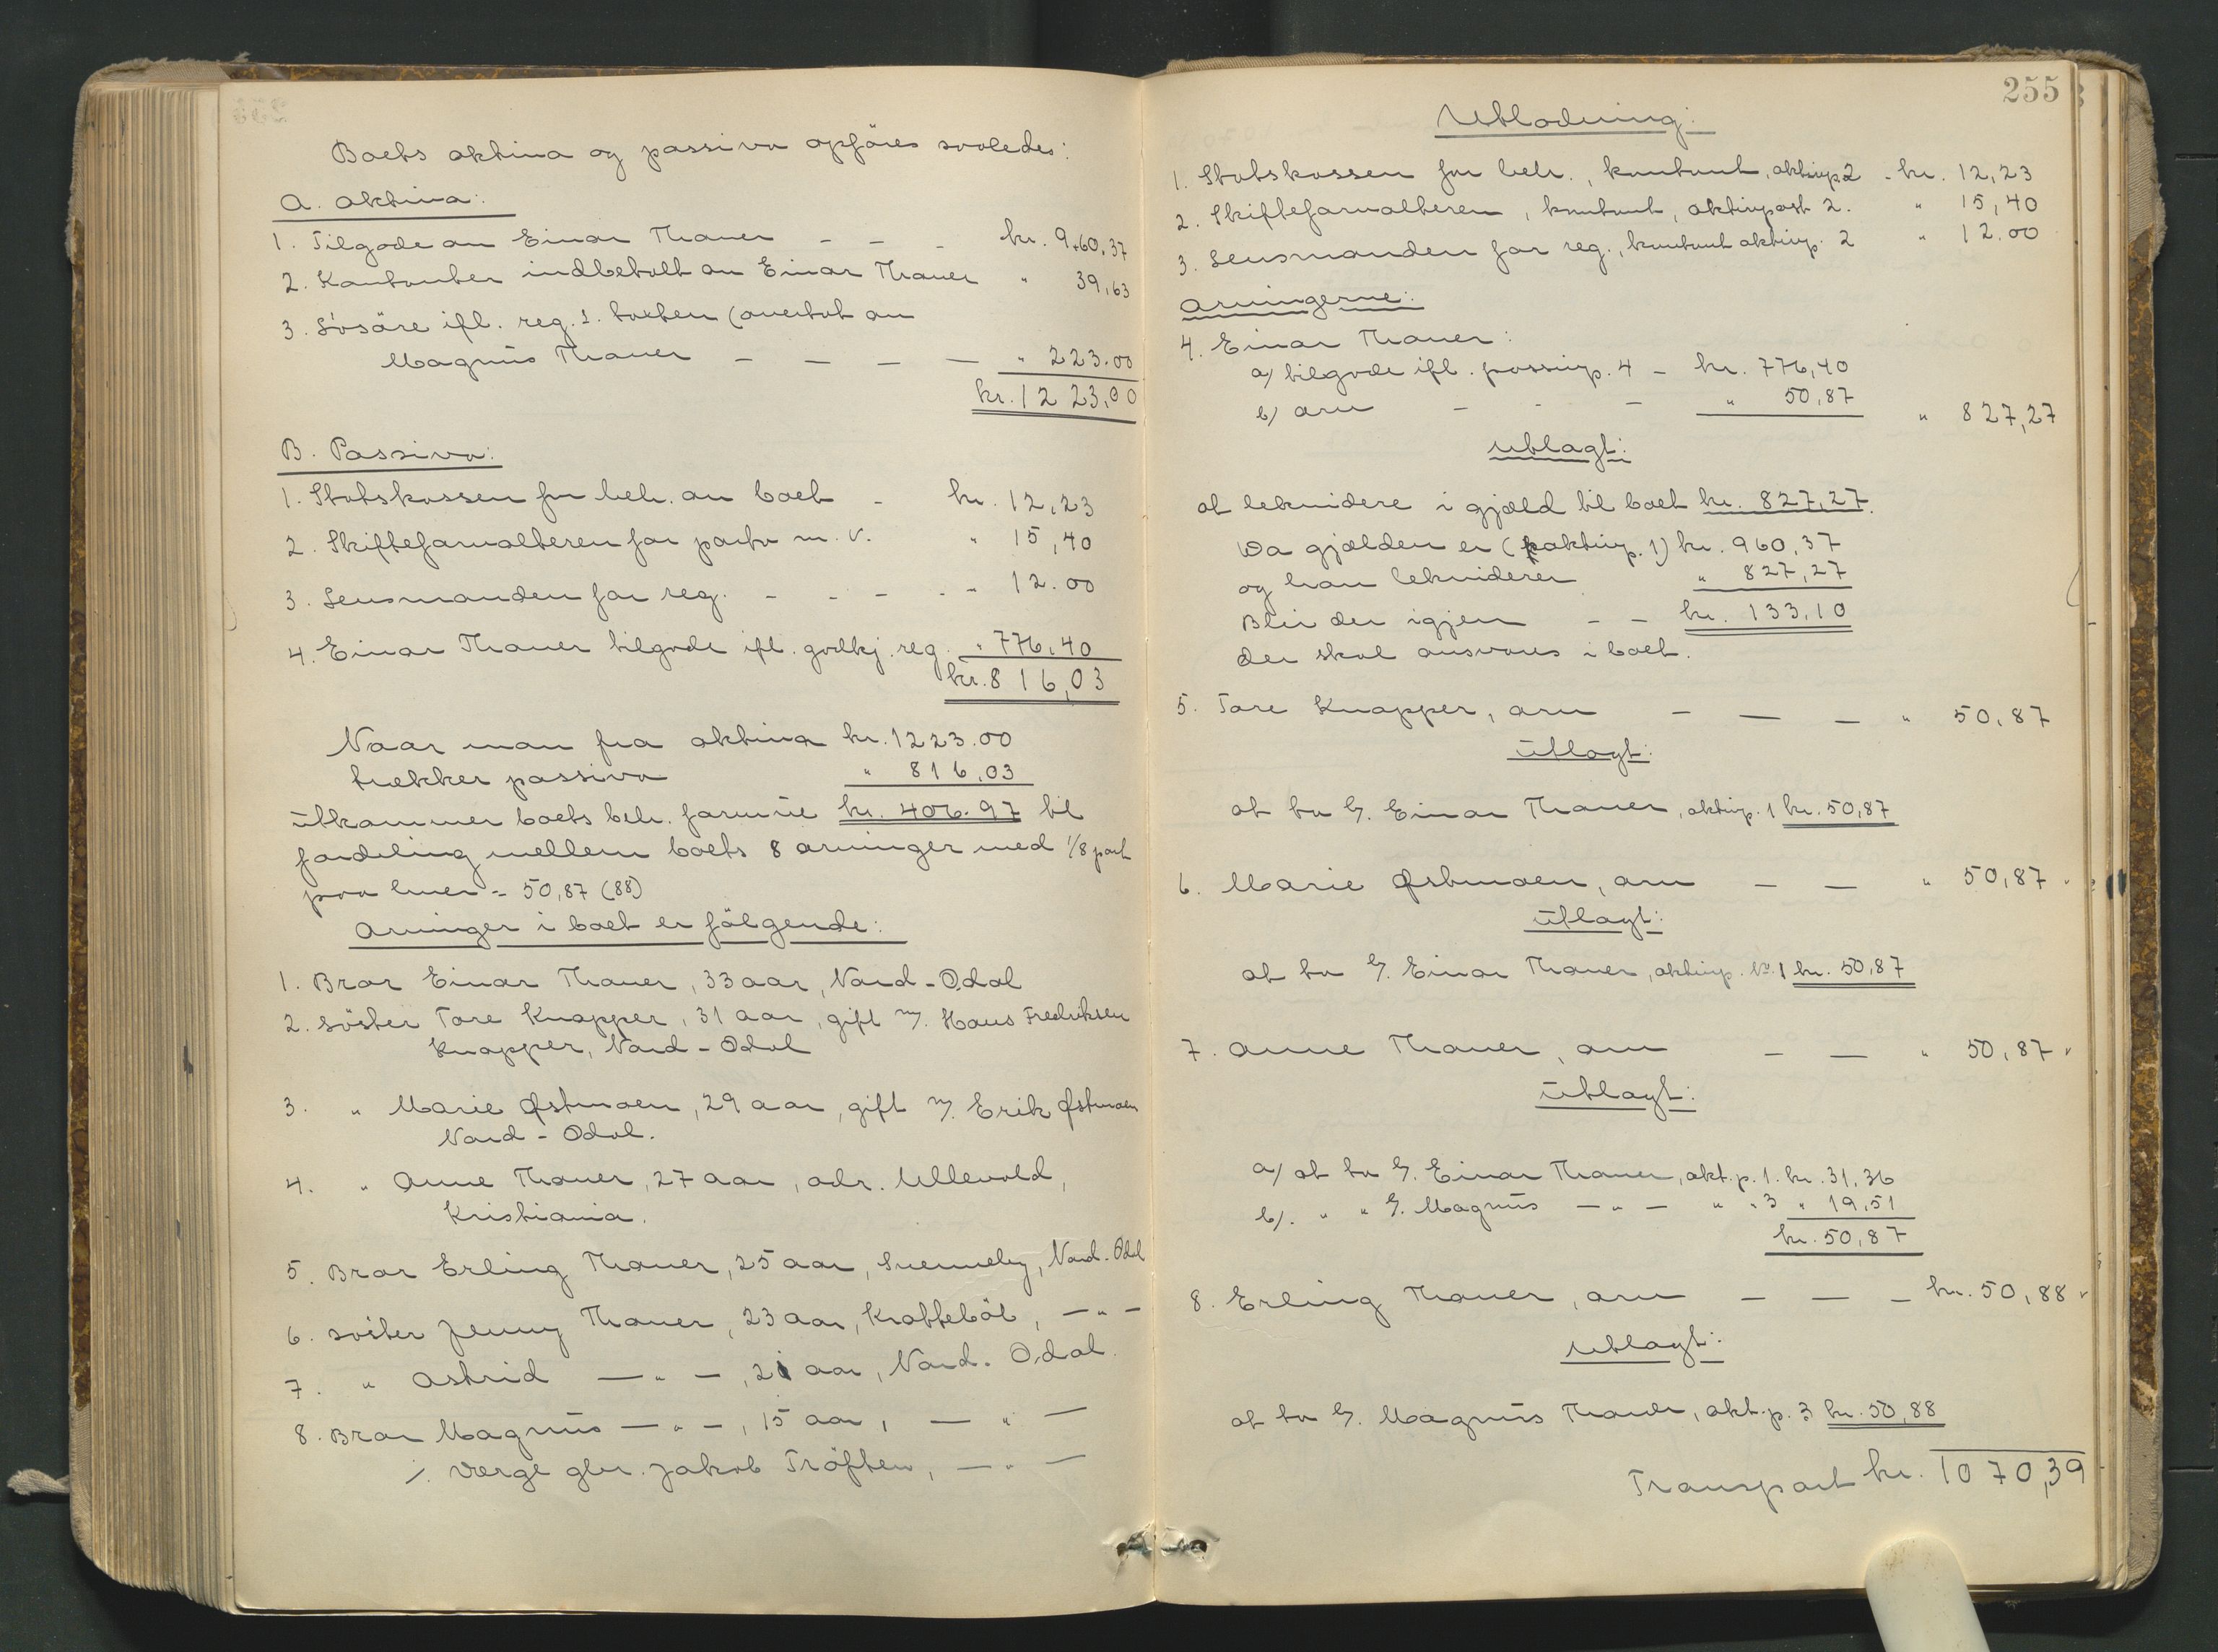 Boets aktiva og passiva opføres saaledes:
A. Aktiva:
1. Tilgode av Einar Thaner - - - kr. 960,37
2. Kontanter indbetalt av Einar Thaner " 39,63
3. Løsøre ifl. reg. s. takten (overtat av
Magnus Thaner - - - - " 223.00
kr. 1223,00
B. Passiva:
1. Statskassen for beh. av boet - kr. 12,23
2. Skifteforvalteren for porto m. v. " 15,40
3. Lensmanden for reg. - - - - " 12.00
4. Einar Thaner tilgode ifl. godkj. reg. " 776,40
kr. 816,03
Naar man fra aktiva kr. 1223.00
trækker passiva " 816,03
utkommer boets beh. formue kr. 406.97 til
fordeling mellem boets 8 arvinger med 1/8 part
paa hver = 50,87 (88)
Arvinger i boet er følgende:
1. Bror Einar Thaner, 33 aar, Nord-Odal
2. Søster Tore Knapper, 31 aar, gift m/. Hans Fredriksen
Knapper, Nord-Odal
3. " Marie Østmoen, 29 aar, gift m/. Erik Østmoen
Nord-Odal.
4. " Anne Thaner, 27 aar, adr. Ullevold,
Kristiania.
5. Bror Erling Thaner, 25 aar, Svenneby, Nord-Odal
6. Søster Jenny Thaner, 23 aar, Krattebøl, — " —
7. " Astrid — " —, 21 aar, Nord-Odal.
8. Bror Magnus — " —, 15 aar, — " —
/. Verge gbr. Jakob Trøften, — " —
255
Utlodning:
1. Statskassen for beh., kontant, aktivp. 2 - kr. 12,23
2. Skifteforvalteren, kontant, aktivpost 2. " 15,40
3. Lensmanden for reg., kontant aktivp. 2 " 12.00
Arvingerne:
4. Einar Thaner:
a/ tilgode ifl. passivp. 4 - kr. 776,40
b/ arv - - - " 50,87 " 827,27
Utlagt:
at lekvidere i gjæld til boet kr. 827,27.
Da gjælden er (aktivp. 1) kr. 960,37
og han lekviderer " 827,27
Blir der igjen - - kr. 133,10
der skal ansvares i boet.
5. Tore Knapper, arv - — — " 50,87
Utlagt:
at ta h/. Einar Thaner, aktivp. 1 kr. 50,87
6. Marie Østmoen, arv — — " 50,87
Utlagt:
at ta h/. Einar Thaner, aktivp. № 1 kr. 50,87
7. Anne Thaner, arv - — " 50,87
Utlagt:
a/ at ta h/. Einar Thaner, akt.p. 1. kr. 31,36
b/. " " h/. Magnus — " — " " 3 " 19,51
kr. 50,87
8. Erling Thaner, arv — — - kr. 50,88
Utlagt:
at ta h/. Magnus Thaner, akt.p. 3 kr. 50,88
Transport kr. 1070,39